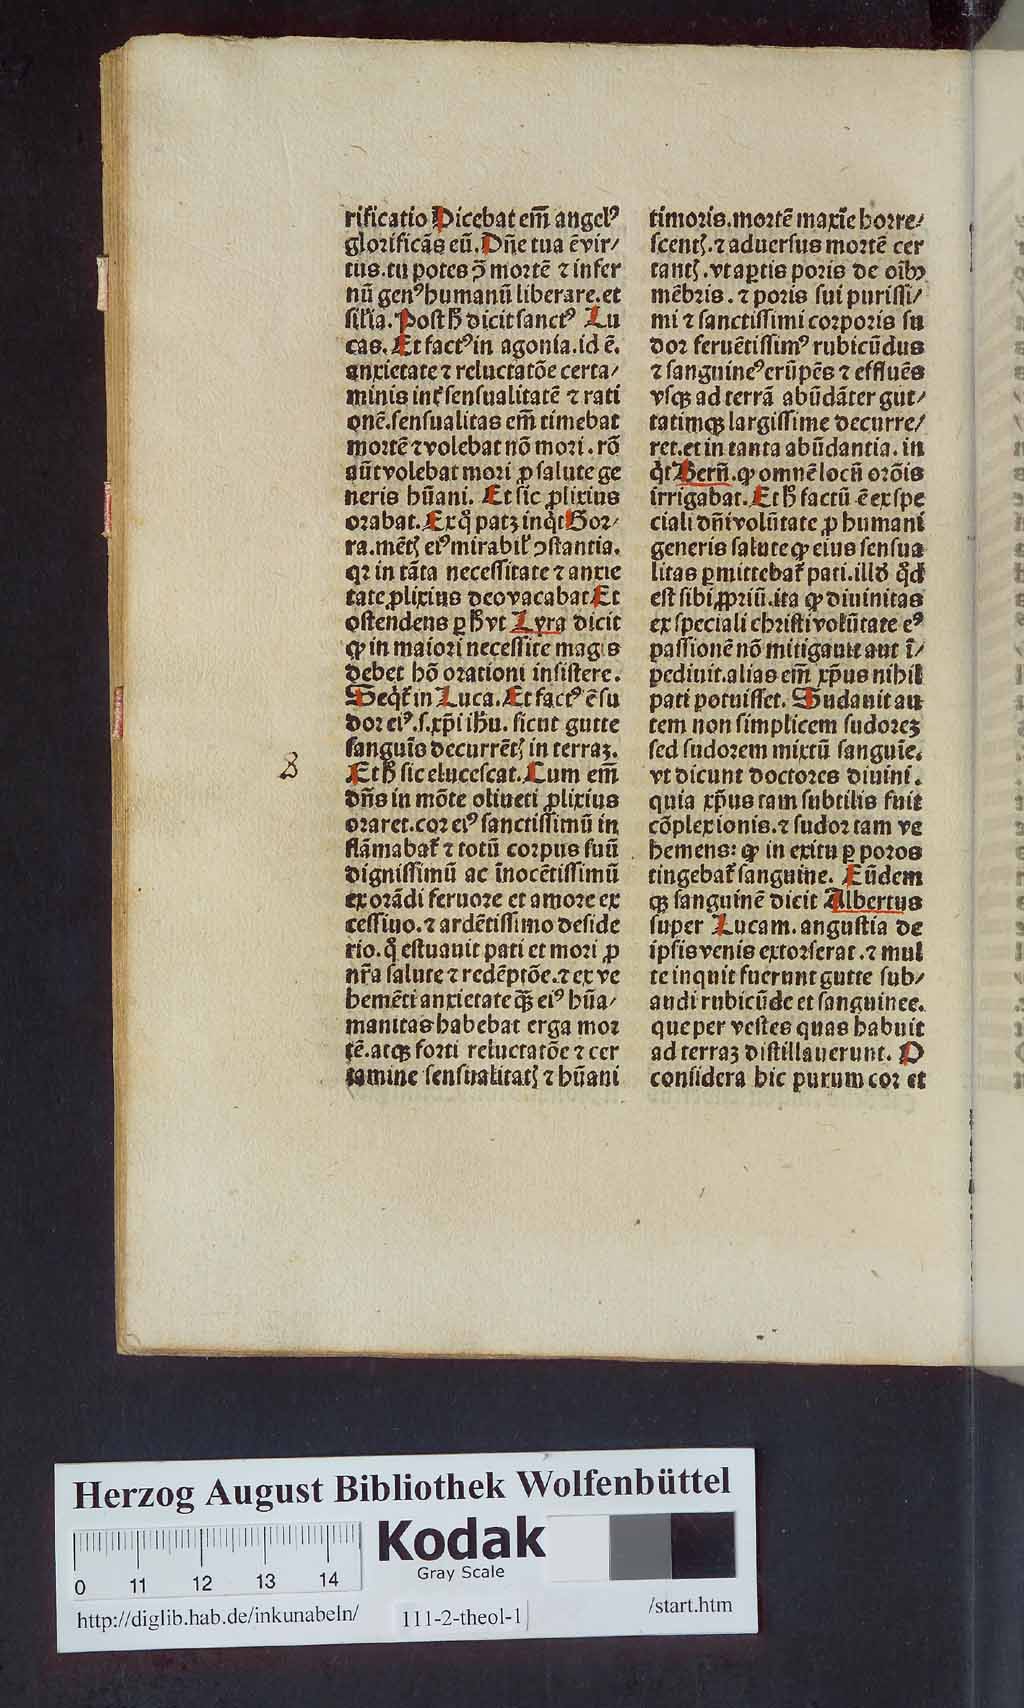 rificatio Dicebat em̄ angelꝰ
glorificās eū. Dn̄e tua ē vir/
tus. tu potes ꝓ mortē ⁊ infer
nū genꝰ humanū liberare. et
sil̄ia. Post hͦ dicit sanctꝰ Lu
cas. Et factꝰ in agonia. id ē.
anxietate ⁊ reluctatōe certa/
minis int̉ sensualitatē ⁊ rati
onē. sensualitas em̄ timebat
mortē ⁊ volebat nō mori. rō
aūt volebat mori ꝓ salute ge
neris hūani. Et sic ꝓlixius
orabat. Ex qͦ patꝫ inqͥt Gor/
ra. mētꝭ eiꝰ mirabil̓ ↄstantia.
qꝛ in tāta necessitate ⁊ anxie
tate ꝓlixius deo vacabat Et
ostendens ꝑ hͦ vt Lyra dicit
ꝙ in maiori necessite magis
debet hō orationi insistere.
Seqͥt̉ in Luca. Et factꝰ ē su
dor eiꝰ .s. xp̄i ih̄u. sicut gutte
sanguīs decurrētꝭ in terraꝫ.
Et hͦ sic elucescat. Cum em̄
dn̄s in mōte oliueti ꝓlixius
oraret. cor eiꝰ sanctissimū in
flāmabat̉ ⁊ totū corpus suū
dignissimū ac īnocētissimū
ex orādi feruore et amore ex
cessiuo. ⁊ ardētissimo deside
rio. qͦ estuauit pati et mori ꝓ
nr̄a salute ⁊ redēptōe. ⁊ ex ve
hemēti anxietate qͣꝫ eiꝰ hūa/
manitas habebat erga mor
tē. atqꝫ forti reluctatōe ⁊ cer
tamine sensualitatꝭ ⁊ hūani
timoris. mortē maxīe horre/
scentꝭ. ⁊ aduersus mortē cer
tantꝭ. vt aꝑtis poris de oībꝫ
mēbris. ⁊ poris sui purissi/
mi ⁊ sanctissimi corporis su
dor feruētissimꝰ rubicūdus
⁊ sanguineꝰ erūpēs ⁊ effluēs
vsqꝫ ad terrā abūdāter gut/
tatimqꝫ largissime decurre/
ret. et in tanta abūdantia. in
qͥt Bern̄. ꝙ omnē locū orōis
irrigabat. Et hͦ factū ē ex spe
ciali dn̄i volūtate ꝓ humani
generis salute ꝙ eius sensua
litas ꝑmittebat̉ pati. illd̄ qͦd
est sibi ꝓpriū. ita ꝙ diuinitas
ex speciali christi volūtate eꝰ
passionē nō mitigauit aut ī/
pediuit. alias em̄ xp̄us nihil
pati potuisset. Sudauit au
tem non simplicem sudoreꝫ
sed sudorem mixtū sanguīe.
vt dicunt doctores diuini.
quia xp̄us tam subtilis fuit
cōplexionis. ⁊ sudor tam ve
hemens: ꝙ in exitu ꝑ poros
tingebat̉ sanguine. Eūdem
qꝫ sanguinē dicit Albertus
super Lucam. angustia de
ipsis venis extorserat. ⁊ mul
te inquit fuerunt gutte sub/
audi rubicūde et sanguinee.
que per vestes quas habuit
ad terraꝫ distillauerunt. O
considera hic purum cor et
Herzog August Bibliothek Wolfenbüttel
Kodak
Gray Scale
0 11 12 13 14
http://diglib.hab.de/inkunabeln/
111-2-theol-1
/start.htm